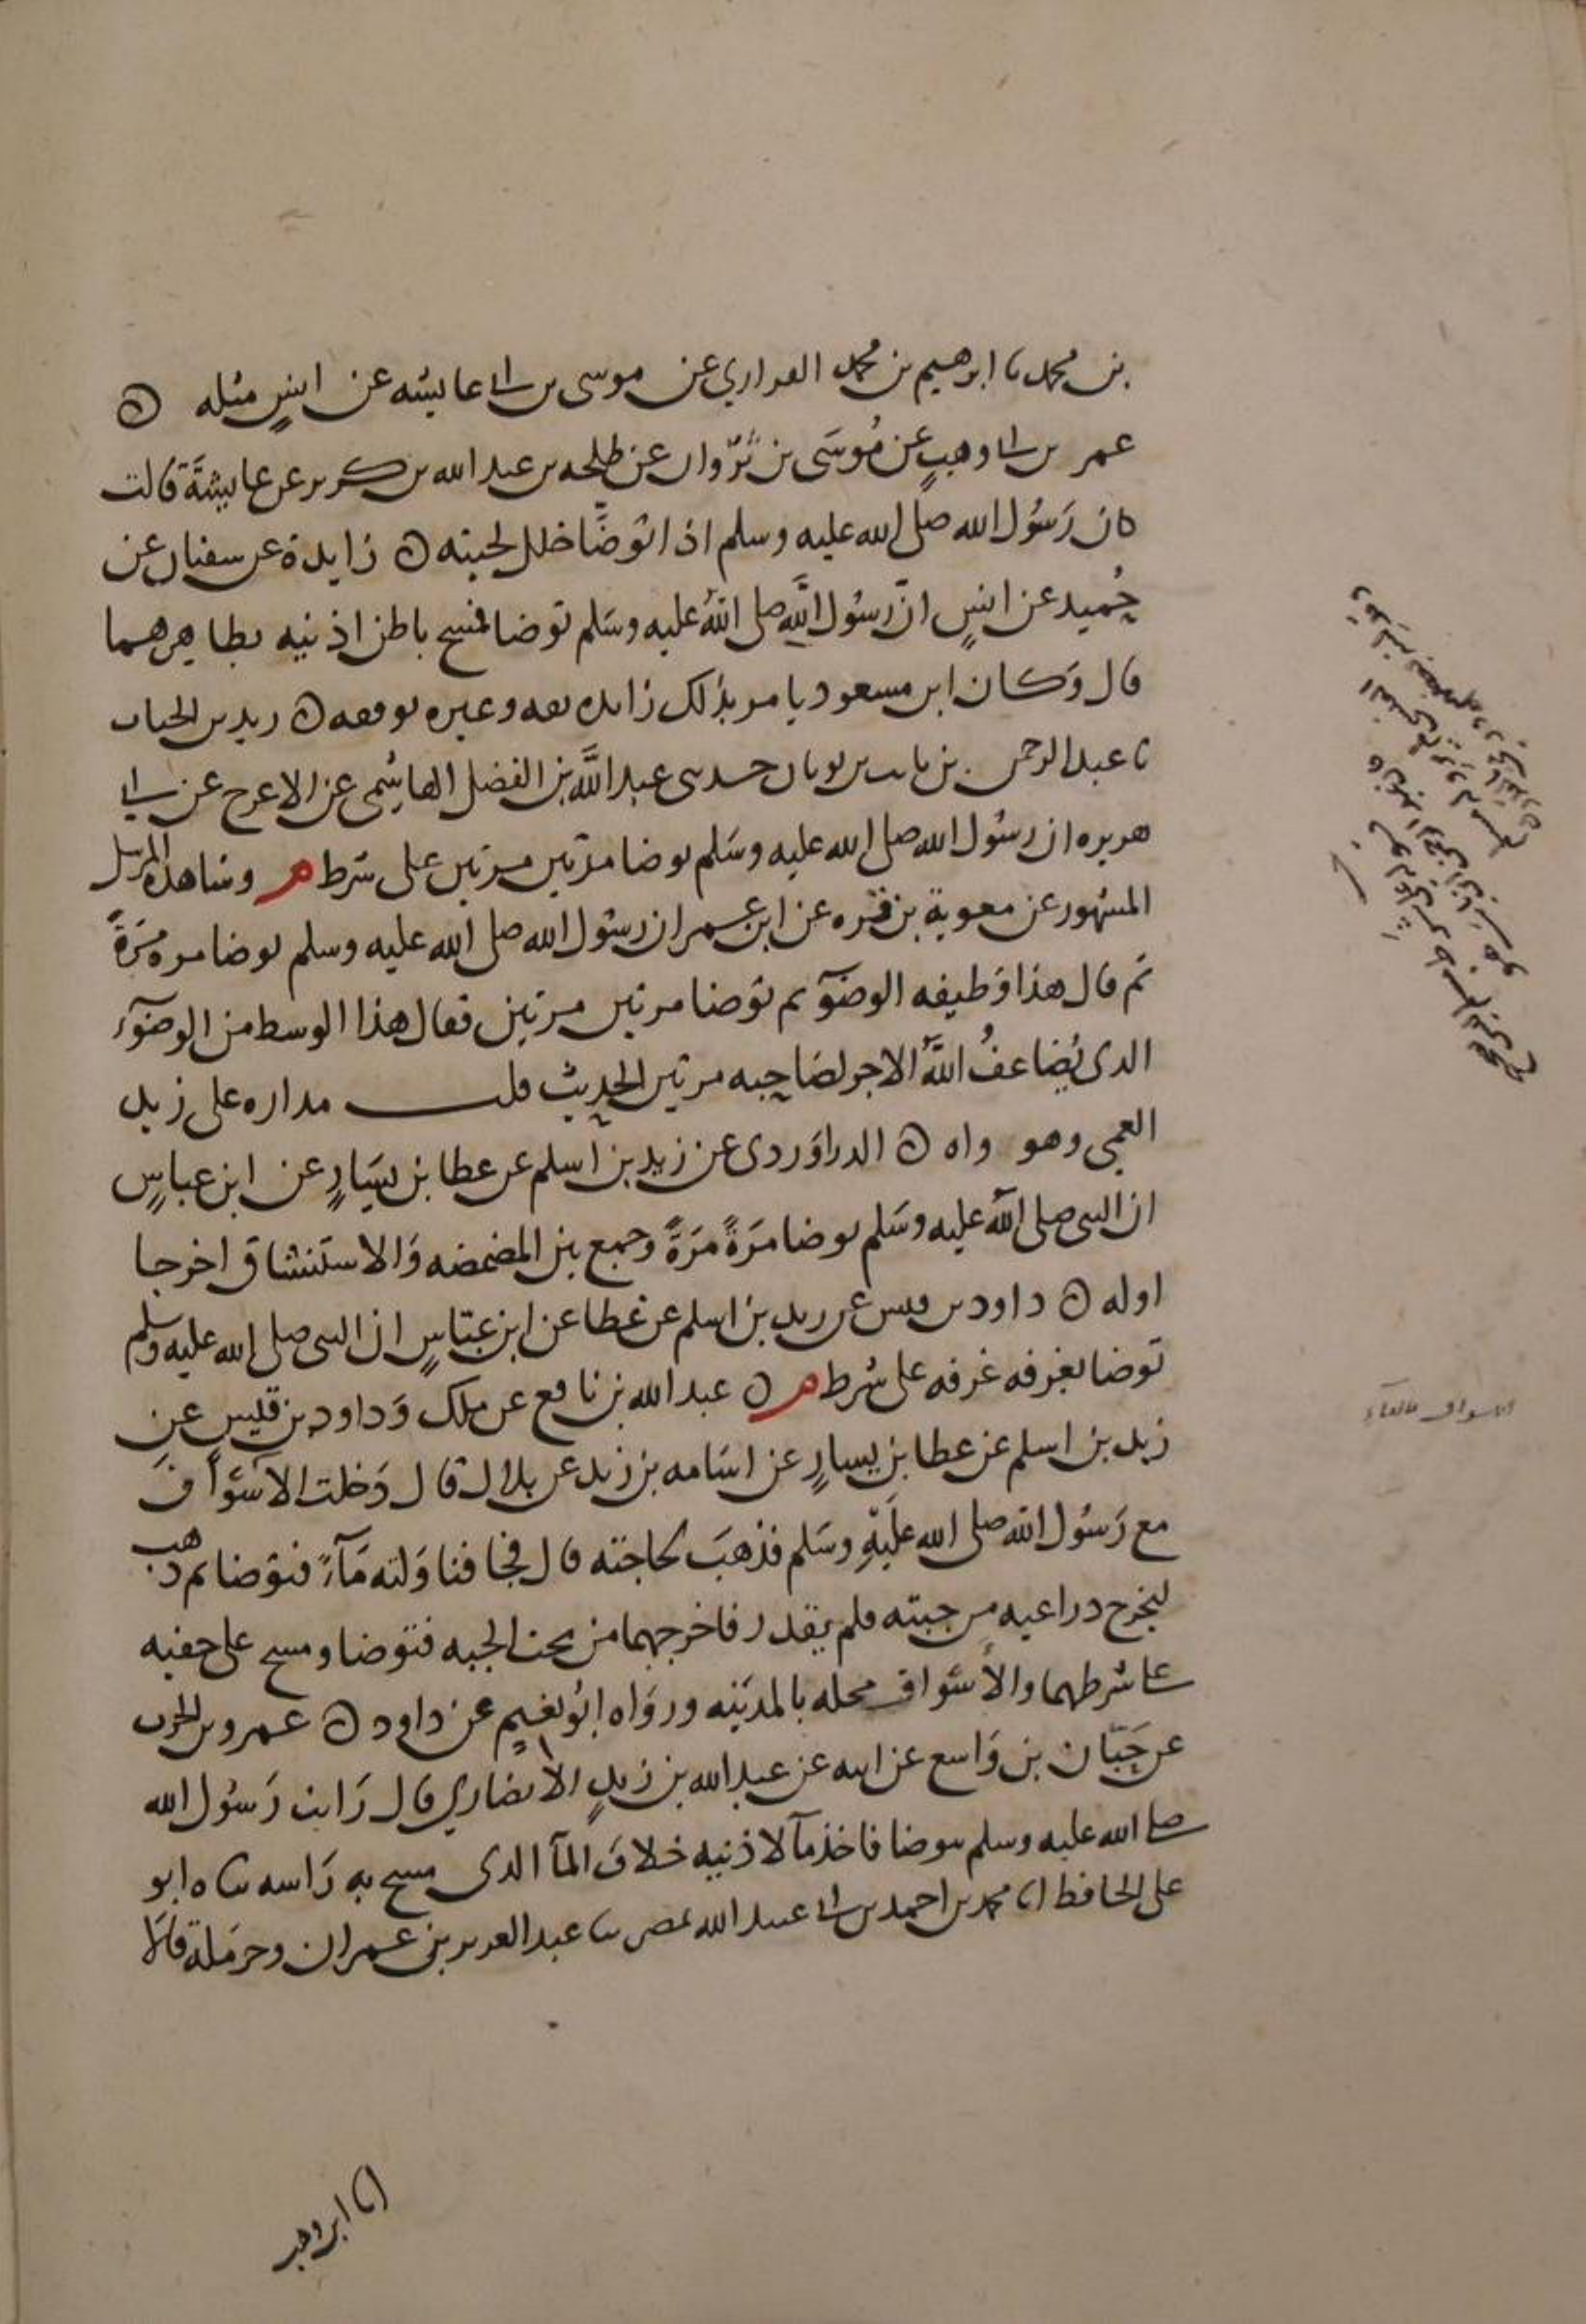 بن محمد نا ابرهيم بن محمد الفزاري عن موسى بن ابي عايشه عن انسٍ مثله ه
عمر بن ابي وهبٍ عن مُوسَى بن ثَرْوان عن طلحه بن عبد الله بن كريز عن عايشَةَ قالت
كان رَسُول الله صلى الله عليه وسلم اذا توضَّا خلل لحيته ه زايدة عن سفيان عن
حُميد عن انسٍ انّ رسُول اللَّهِ صلى اللهُ عليه وسَلم توضا فمسح باطن اذنيه وظاهرهما
قال وَكان ابن مسعود يامر بذلك زايده ثقه وغيره يوقفه ه زيد بن الحباب
نا عبد الرحمن بن ثابت بن ثوبان حدثني عبد اللَّه بن الفضل الهاشمي عن الاعرج عن ابي
هريره ان رسُول الله صلى الله عليه وسَلم توضا مرّتين مرتين على شرط م وشاهده المرسل
المشهور عن معوية بن قره عن ابن عمر ان رسُول الله صلى الله عليه وسلم توضا مره مَرَةً
ثم قال هذا وَظيفه الوضوٓء ثم توضا مرتين مرتين فقال هذا الوسط من الوضوٓء
الذي يُضاعفُ اللَّهُ الاجر لصَاحِبه مرتين الحديث قلت مداره على زيد
العمي وهو واه ه الدراوَردي عن زيد بن اسلم عن عطا بن يسَارٍ عن ابن عباسٍ
ان النبي صلى اللهُ عليه وسَلم توضا مَرَةً مَرَةً وجمع بين المضمضه وَالاستنشاق اخرجا
اوله ه داود بن قيس عن زيد بن اسلم عن عَطا عن ابن عبّاسٍ ان النبي صلى الله عليه وسلم
توضا بغرفه غرفه على شرط م ه عبد الله بن نافع عن ملك وَداود بن قيسٍ عن
زيد بن اسلم عن عطا بن يسارٍ عن اسَامه بن زيد عن بلال قال دَخلت الاسْوَاف
مع رَسُول الله صلى الله عليْهِ وسَلم فذهَبَ لحاجته قال فجا فناوَلته مَآءً فتوضا ثم ذهب
ليخرج دراعيه من جبته فلم يقدر فاخرجهما من تحت الجبه فتوضا ومسح على خفيه
على شرطهما والأسْواف محله بالمدينه وروَاه ابُو نعيمٍ عن داود ه عمرو بن الحرث
عن حَبّان بن وَاسع عن ابيه عن عبد الله بن زيدٍ الأنصاري قال رَايت رَسُول الله
صلى الله عليه وسلم يتوضا فاخذ مآ لاذنيه خلاف المآ الذي مسح به رَاسه ثناه ابو
علي الحافظ انا محمد بن احمد بن ابي عبيد الله بمصر ثنا عبد العزيز بن عمران وحرمَلة قالا
الاسواف بالفاء
انا ابن وهب